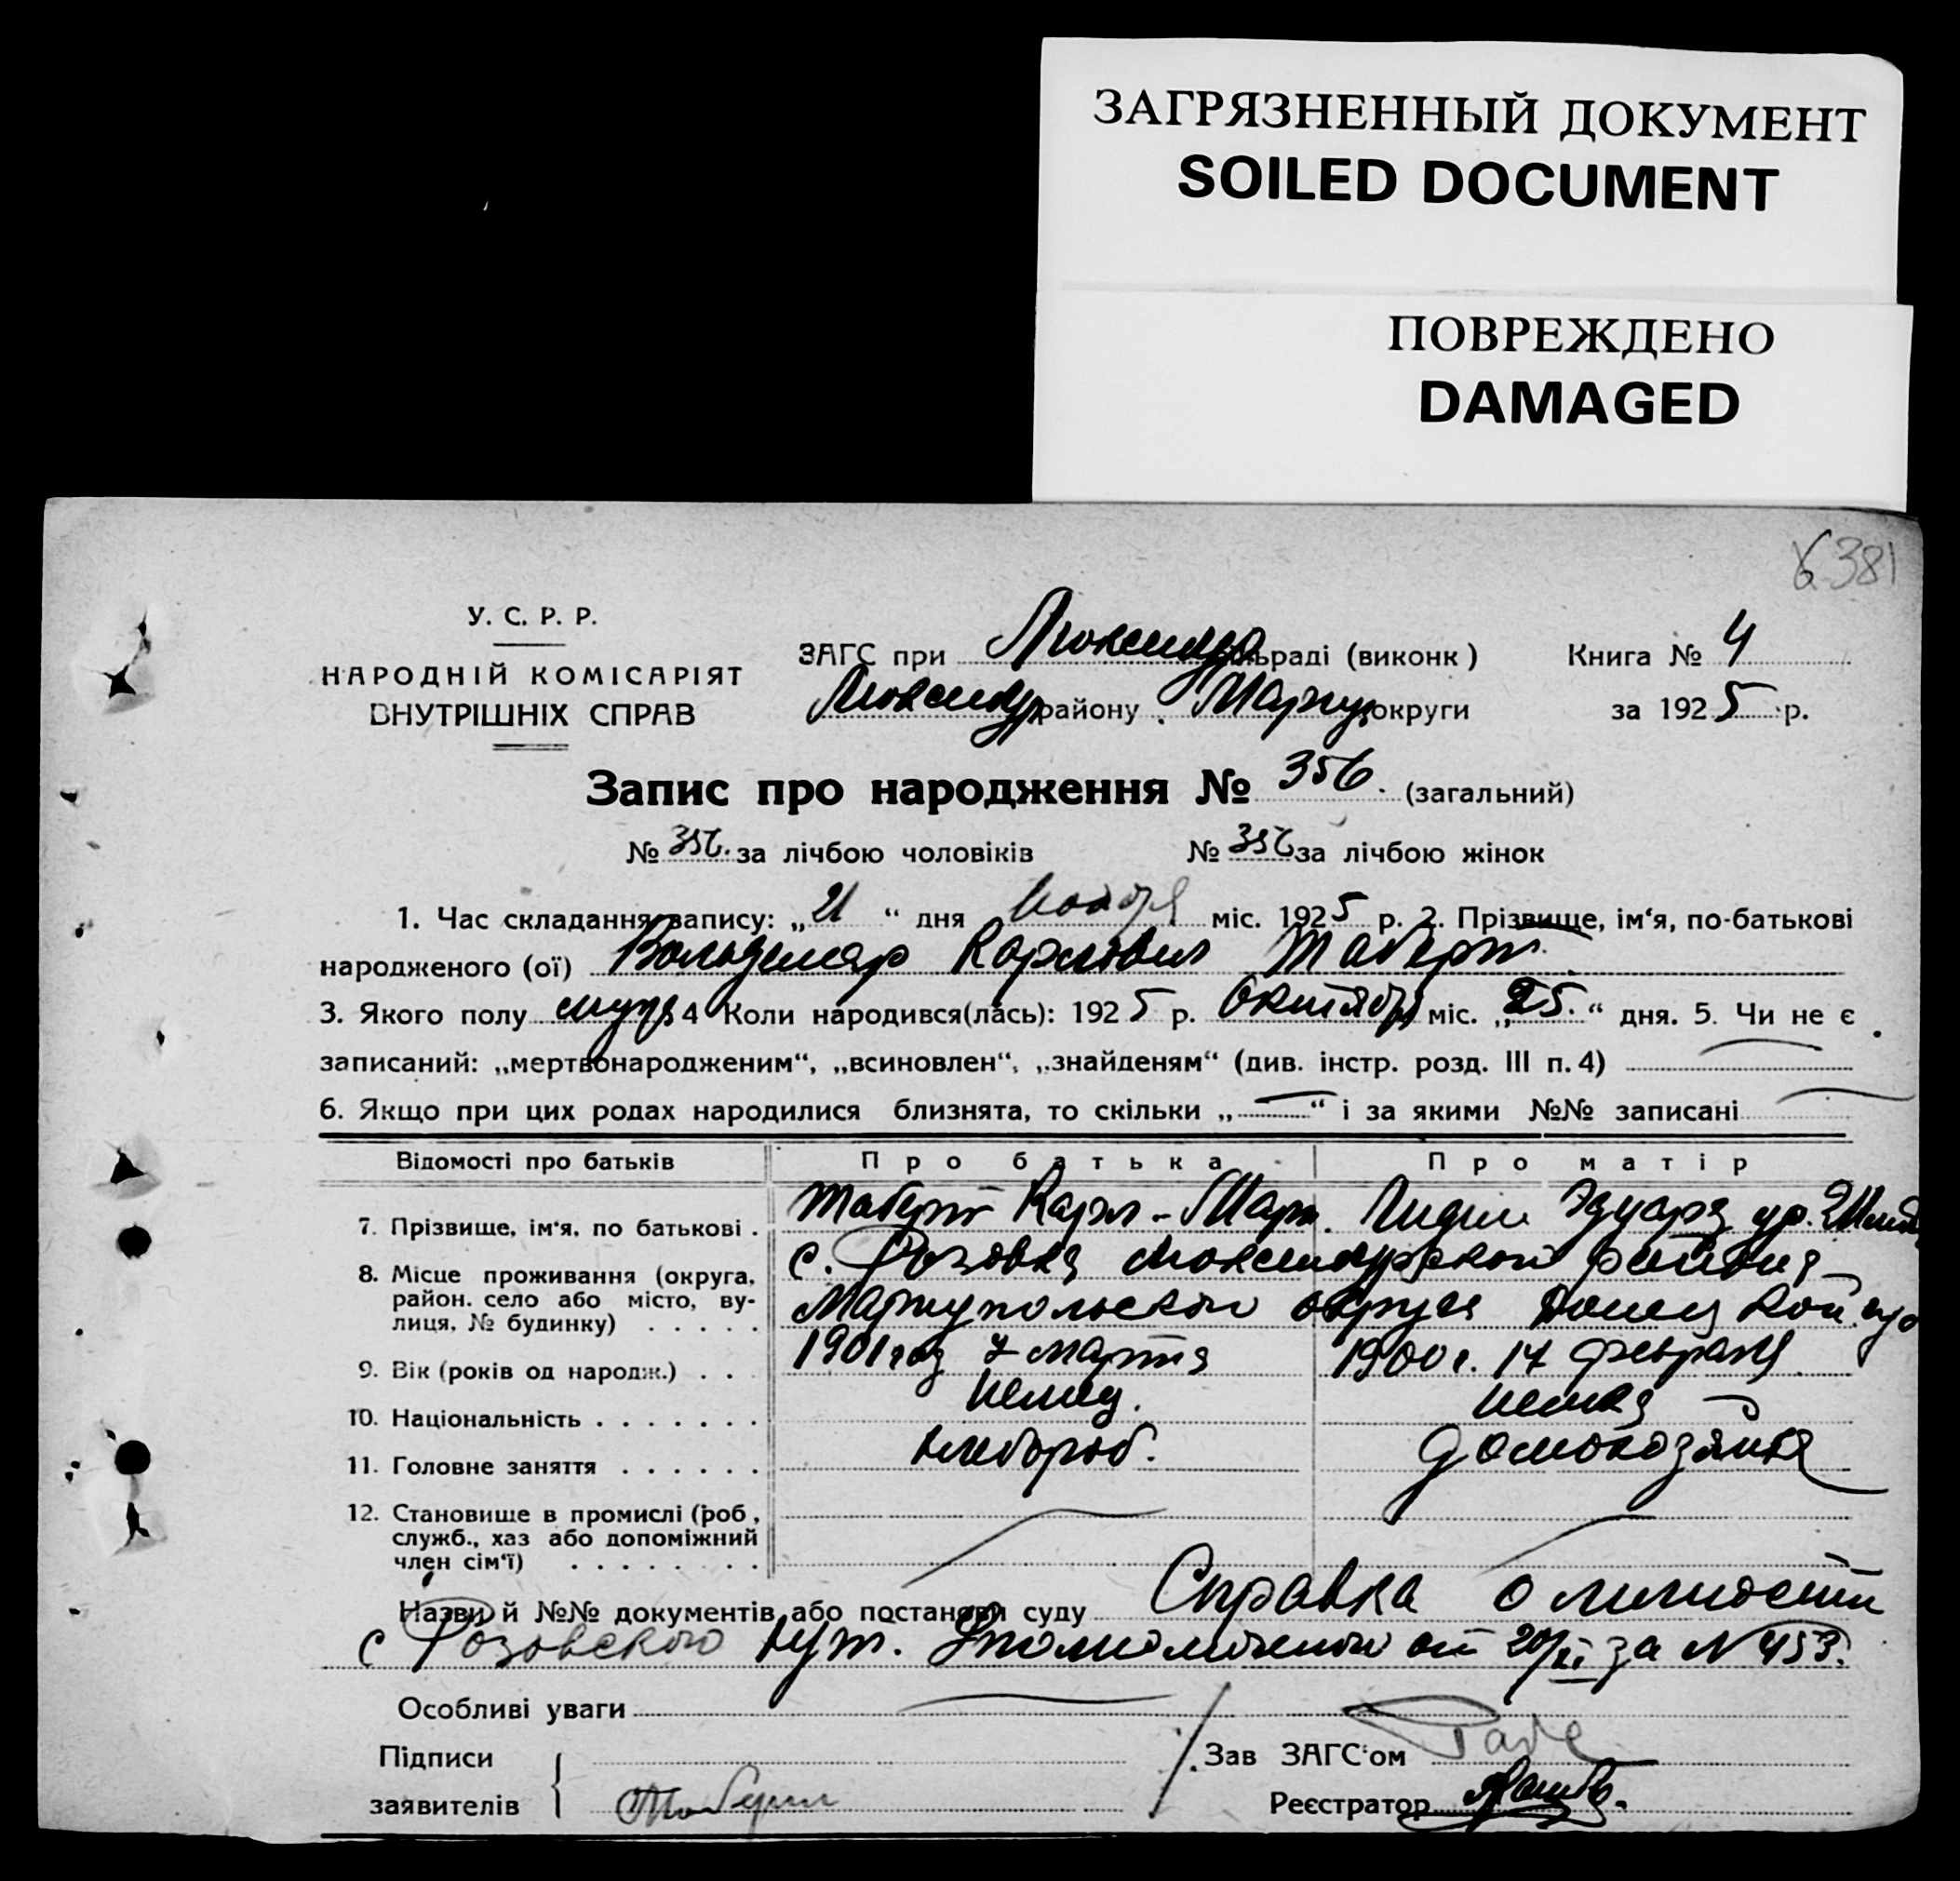 ЗАГРЯЗНЕННЫЙ ДОКУМЕНТ
SOILED DOCUMENT
ПОВРЕЖДЕНО
DAMAGED
381
У. С. Р. Р.
НАРОДНІЙ КОМІСАРІЯТ
ВНУТРІШНІХ СПРАВ
ЗАГС при Люксембур раді (виконк) Книга № 4
Люксембур району Мариу округи за 1925 р.
Запис про народження № 356. (загальний)
№ 356. за лічбою чоловіків № 356 за лічбою жінок
1. Час складання запису: „21“ дня Ноября міс. 1925 р. 2. Прізвище, ім‘я, по-батькові
народженого (ої) Вольдемар Карлович Таберт.
3. Якого полу муж 4 Коли народився(лась): 1925 р. Октября міс. „25.“ дня. 5. Чи не є
записаний: „мертвонародженим“, „всиновлен“, „знайденям“ (див. інстр. розд. III п. 4)
6. Якщо при цих родах народилися близнята, то скільки „—“ і за якими №№ записані
Відомості про батьків Про батька Про матір
7. Прізвище, ім‘я, по батькові . Таберт Карл-Март. Лидия Эдуард ур.
8. Місце проживання (округа, район. село або місто, ву-лиця, № будинку) . . . . . с. Розовка Люксембургского района
Мариупольского округа Донец
9. Вік (років од народж.) . . . 1901 год 7 марта 1900 г. 17 февраля
10. Національність . . . . . . . немец. немка
11. Головне заняття . . . . . . хлебороб. домохозяйка
12. Становище в промислі (роб, служб., хаз або допоміжний член сім‘ї) . . . . . . . .
Назви й №№ документів або постанови суду Справка о личности
с Розовского хут. Уполномоченого от 20/XI за N 453.
Особливі уваги
Підписи
заявителів Таберт
Зав ЗАГС‘ом
Реєстратор